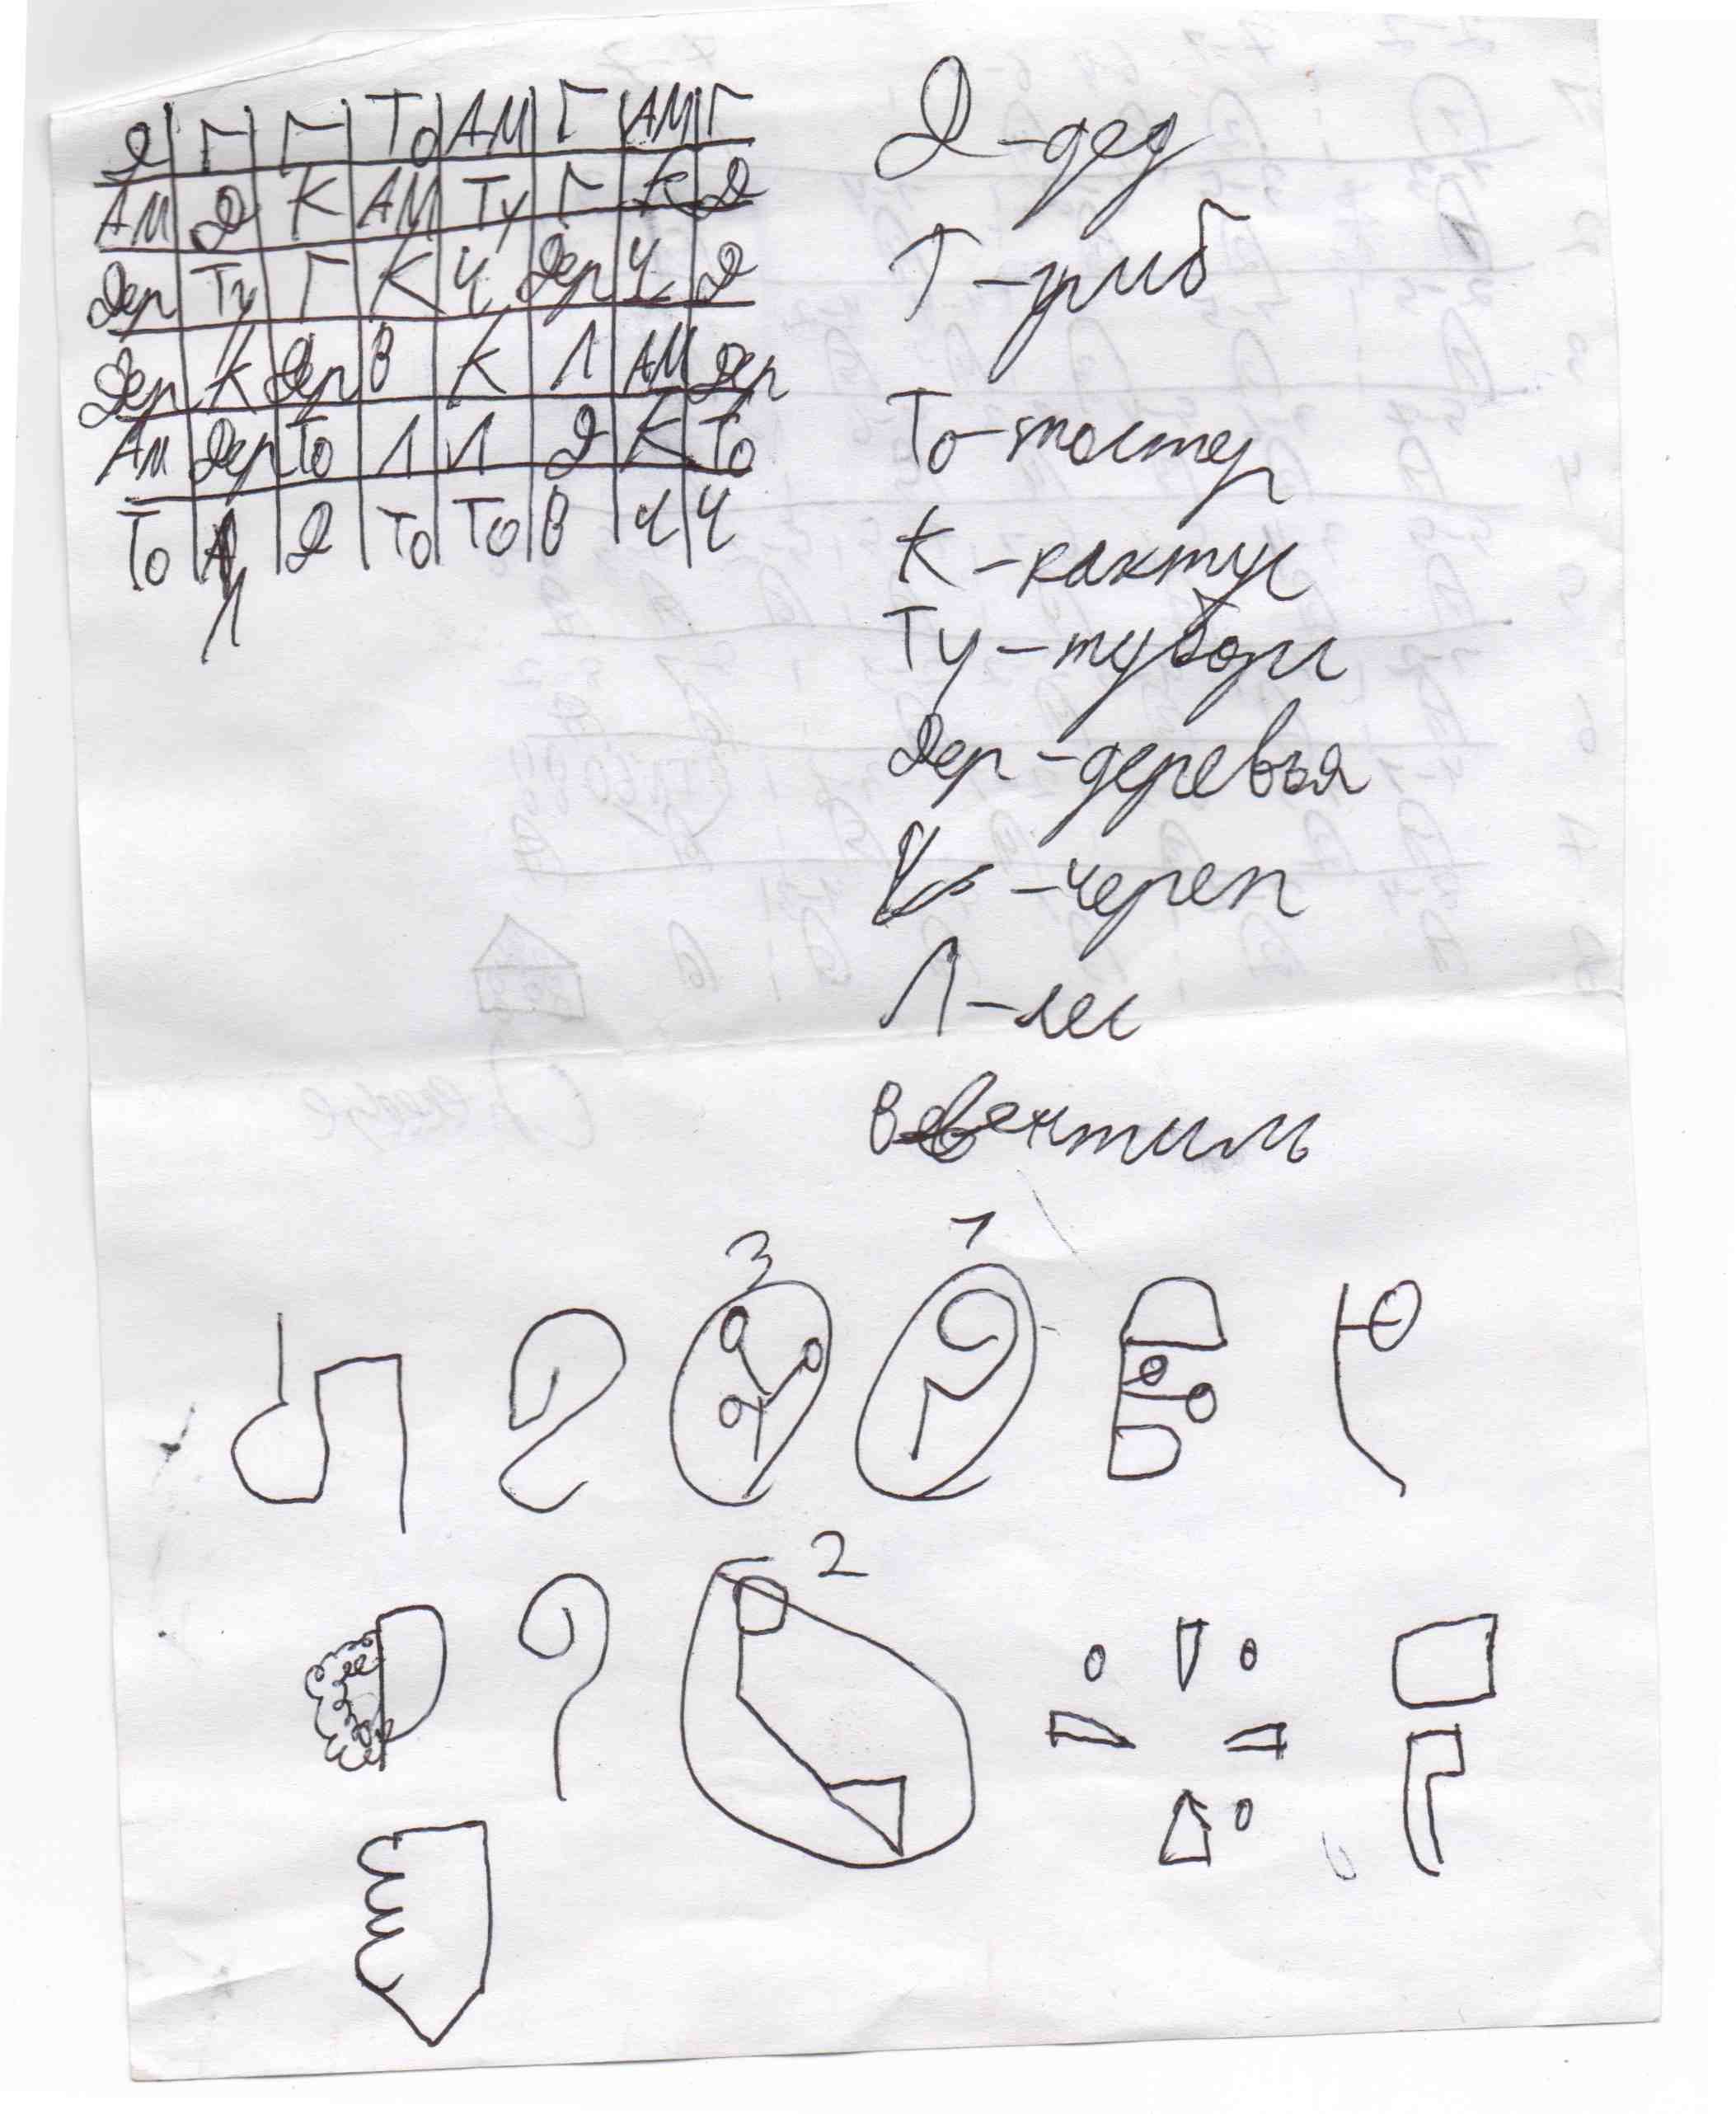 Д Г Г То АМ Г АМ Г
АМ Д К АМ Ту Г К Д
Дер Ту Г К Ч Дер Ч Д
Дер К Дер В К Л АМ Дер
АМ Дер То Л Л Д К То
То Л Д То То В Ч Ч
Д-дед
Г-гриб
То-тостер
К-кактус
Ту-туборг
Дер-деревья
Ч-череп
Л-лес
В-вентиль
3 1
2